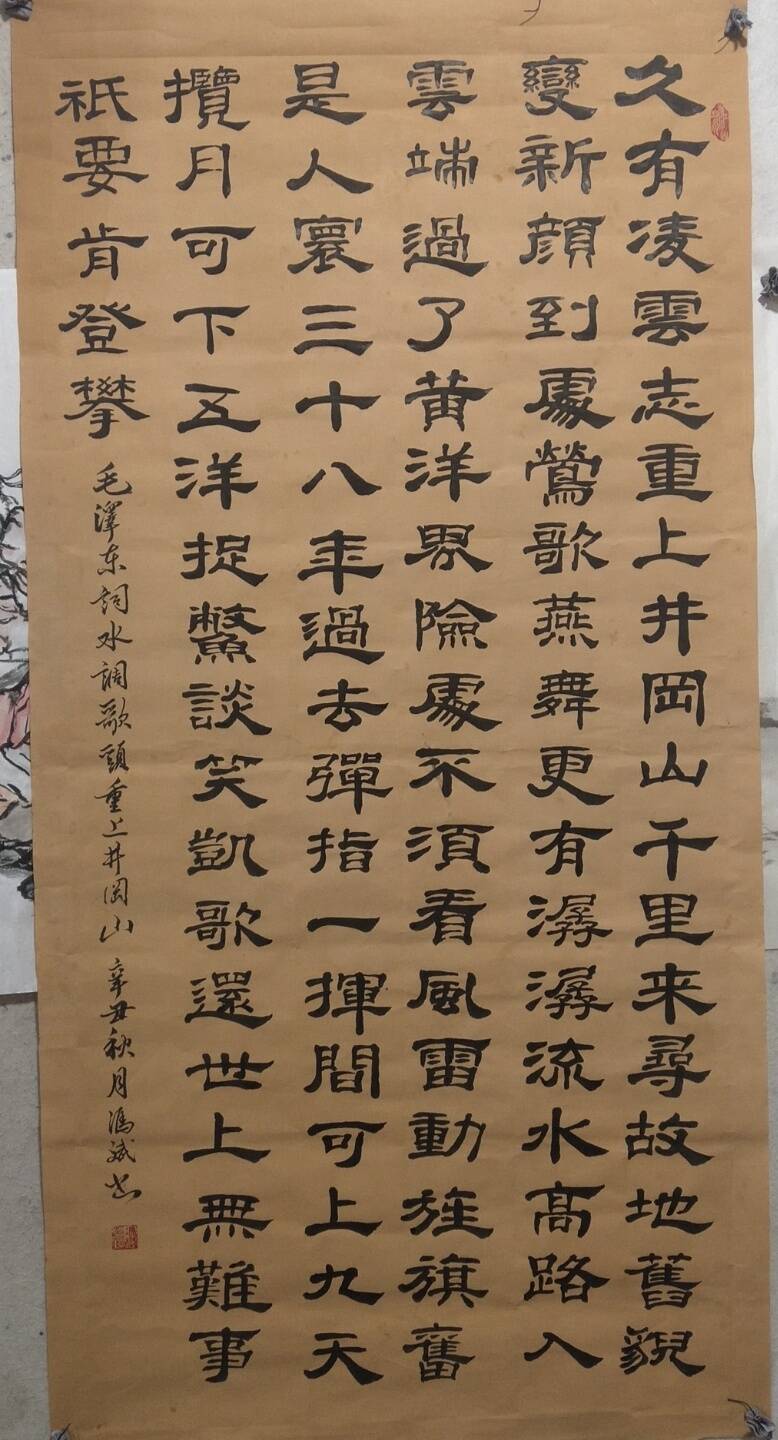 久有凌雲志重上井岡山千里来尋故地舊貌
變新顔到處鶯歌燕舞更有潺潺流水高路入
雲端過了黄洋界險處不須看風雷動旌旗奮
是人寰三十八年過去彈指一揮間可上九天
攬月可下五洋捉鱉談笑凱歌還世上無難事
祇要肯登攀
毛澤东詞水調歌頭重上井岡山 辛丑秋月馮斌书